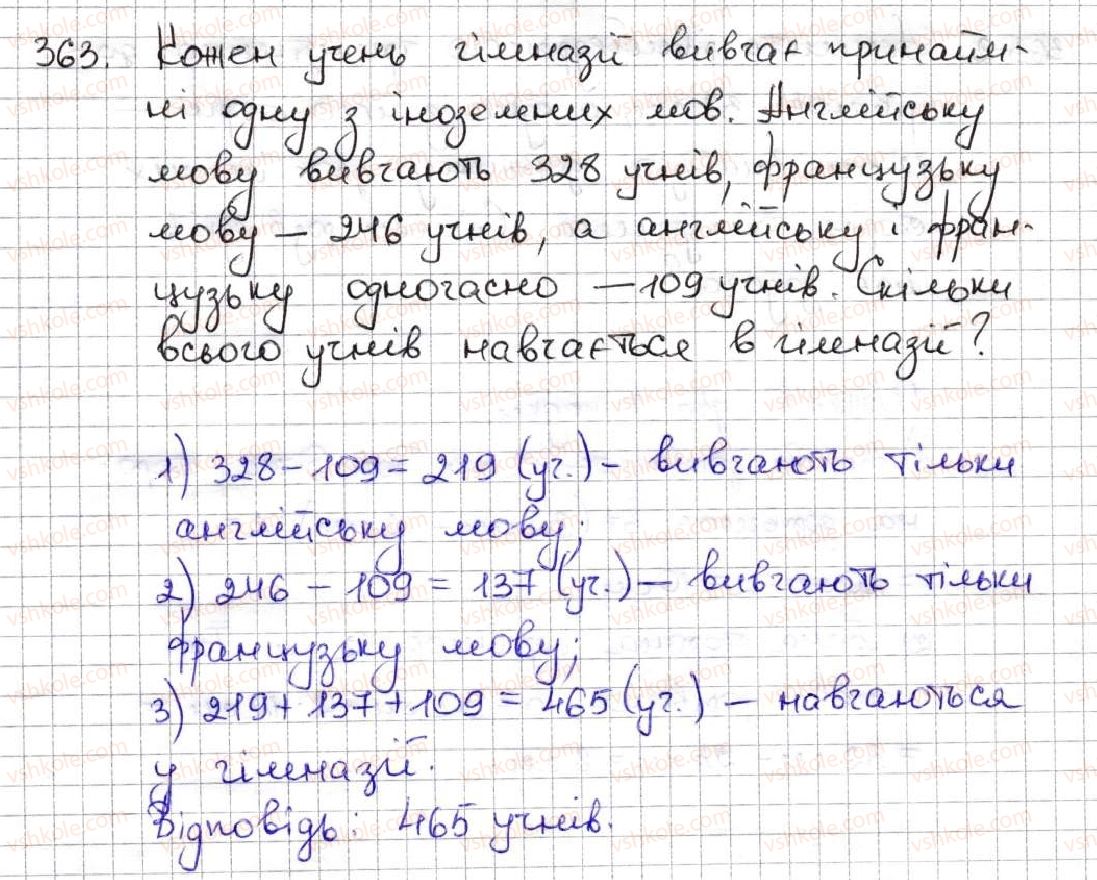 363. Кожен учень гімназії вивчає принайм-
ні одну з іноземних мов. Англійську
мову вивчають 328 учнів, французьку
мову — 246 учнів, а англійську і фран-
цузьку одночасно — 109 учнів. Скільки
всього учнів навчається в гімназії?
1) 328 - 109 = 219 (уч.) - вивчають тільки
англійську мову;
2) 246 - 109 = 137 (уч.) — вивчають тільки
французьку мову;
3) 219 + 137 + 109 = 465 (уч.) — навчаються
у гімназії.
Відповідь: 465 учнів.